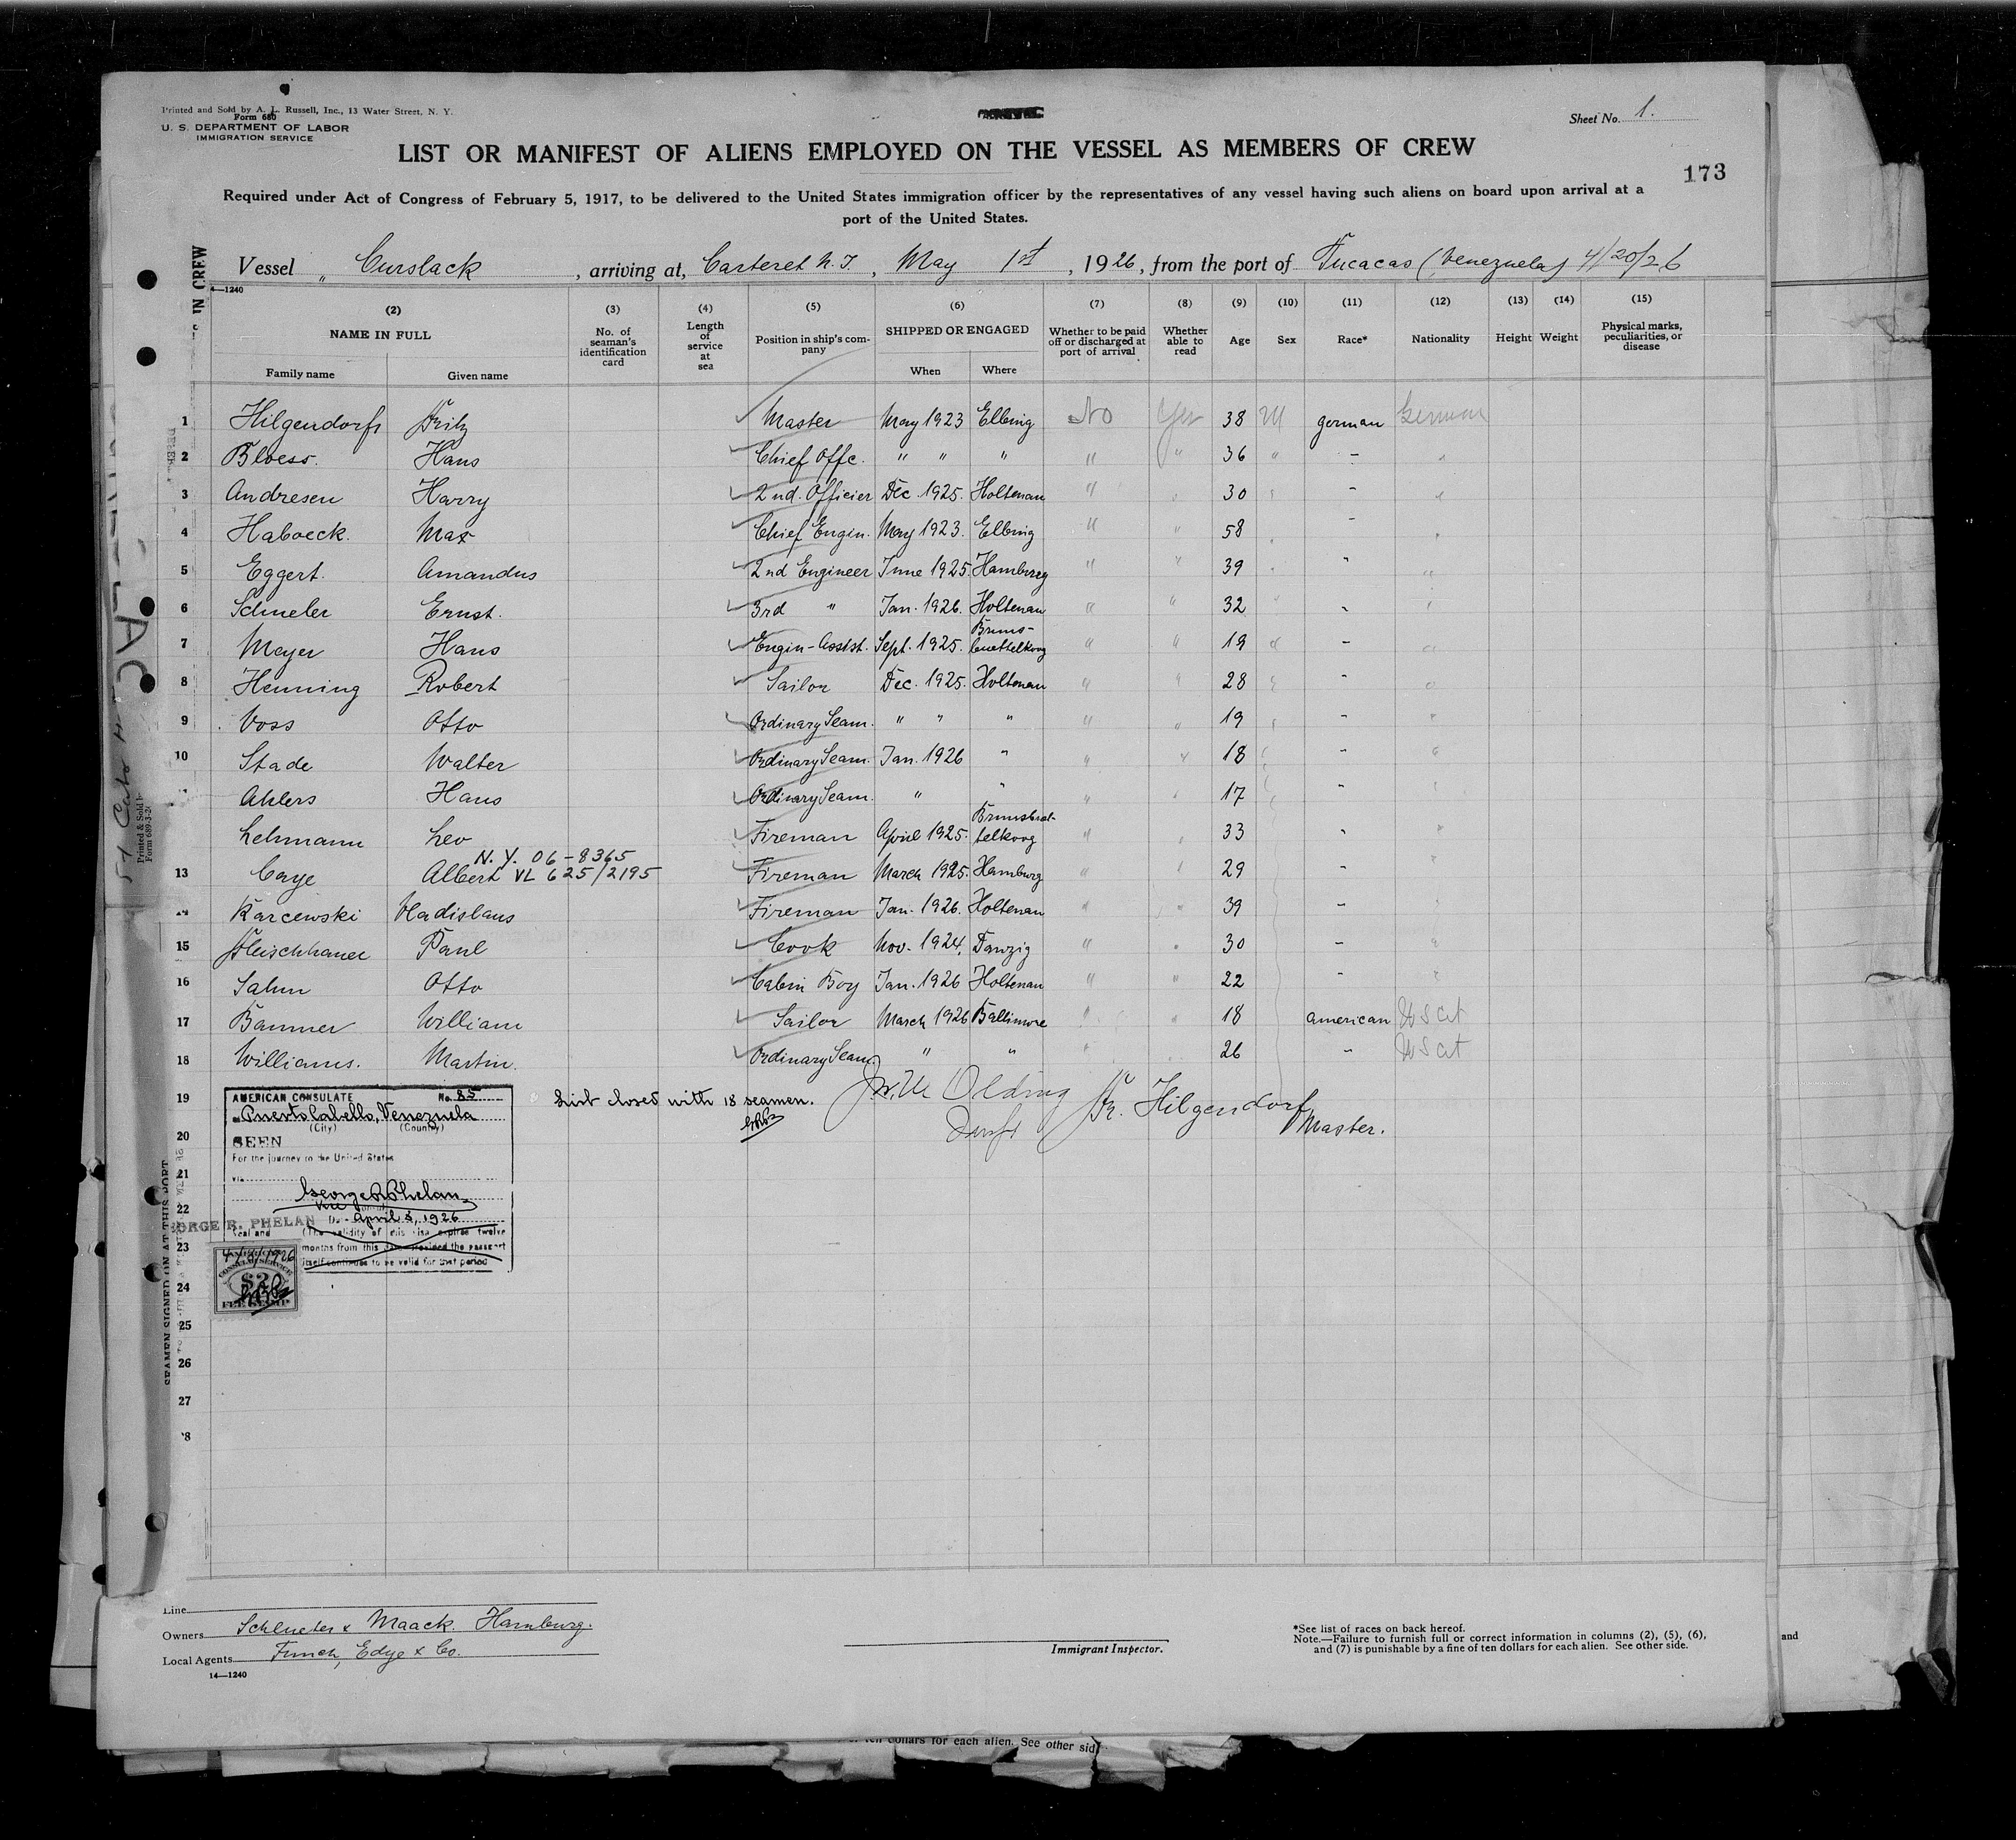 Printed and Sold by A. L. Russell, Inc., 13 Water Street, N. Y.
Form 680
U. S. DEPARTMENT OF LABOR
IMMIGRATION SERVICE
Sheet No. 1.
LIST OR MANIFEST OF ALIENS EMPLOYED ON THE VESSEL AS MEMBERS OF CREW
173
Required under Act of Congress of February 5, 1917, to be delivered to the United States immigration officer by the representatives of any vessel having such aliens on board upon arrival at a
port of the United States.
Vessel „ Curslack, arriving at, Carteret N. J., May 1st, 1926, from the port of Tucacas (Venezuela) 4/20/26
4—1240
(2) (3) (4) (5) (6) (7) (8) (9) (10) (11) (12) (13) (14) (15)
NAME IN FULL No. of seaman's identification card Length of service at sea Position in ship's company SHIPPED OR ENGAGED Whether to be paid off or discharged at port of arrival Whether able to read Age Sex Race* Nationality Height Weight Physical marks, peculiarities, or disease
Family name Given name When Where
1 Hilgendorff Fritz Master May 1923 Elbing No Yes 38 M german German
2 Bloess. Hans Chief Offc. " " " " " 36 " - "
3 Andresen Harry 2nd. Officier Dec. 1925. Holtenau " " 30 " - "
4 Haboeck. Max Chief Engin. May 1923. Elbing " " 58 " - "
5 Eggert. Amandus 2nd Engineer June 1925. Hamburg " " 39 " - "
6 Schueler Ernst. 3rd " Jan. 1926. Holtenau " " 32 " - "
7 Meyer Hans Engin-Assist. Sept. 1925. Bruns-buettelkoog " " 19 " - "
8 Henning Robert Sailor Dec. 1925. Holtenau " " 28 " - "
9 Voss Otto Ordinary Seam. " " " " " 19 " - "
10 Stade Walter Ordinary Seam. Jan. 1926 " " " 18 - "
Ahlers Hans Ordinary Seam. " " " " 17 - "
Lehmann Leo Fireman April 1925. telkoog " " 33 - "
N. Y. 06-8365
13 Caye Albert VL 625/2195 Fireman March 1925. Hamburg " " 29 - "
14 Karcewski Vladislaus Fireman Jan. 1926. Holtenau " " 39 - "
15 Fleischhauer Paul Cook Nov. 1924. Danzig " " 30 - "
16 Salun Otto Cabin Boy Jan. 1926 Holtenau " " 22 - "
17 Bammer William Sailor March 1926 Baltimore " " 18 american US Cit
18 Williams. Martin. Ordinary Seam. " " " " 26 - US Cit
19 List closed with 18 seamen. Olding Fr. Hilgendorf
Master.
20
21
22
23
24
25
26
27
28
AMERICAN CONSULATE No. 85
Puerto Cabello, Venezuela
(City) (Country)
SEEN
For the journey to the United States
via
George R Phelan
Vice
April 8, 1926
GEORGE R. PHELAN
Seal and (The validity of this visa expires twelve
months from this date provided the passport
itself continues to be valid for that period
4/8/1926
CONSULAR SERVICE
$2
FEE STAMP
SEAMEN SIGNED ON AT THIS PORT
IN CREW
Printed & Sold b
Form 689-3-2
Line
Owners Schlueter & Maack. Hamburg.
Local Agents Funch, Edye & Co.
14—1240
Immigrant Inspector.
*See list of races on back hereof.
Note.—Failure to furnish full or correct information in columns (2), (5), (6),
and (7) is punishable by a fine of ten dollars for each alien. See other side.
and
ten dollars for each alien. See other sid